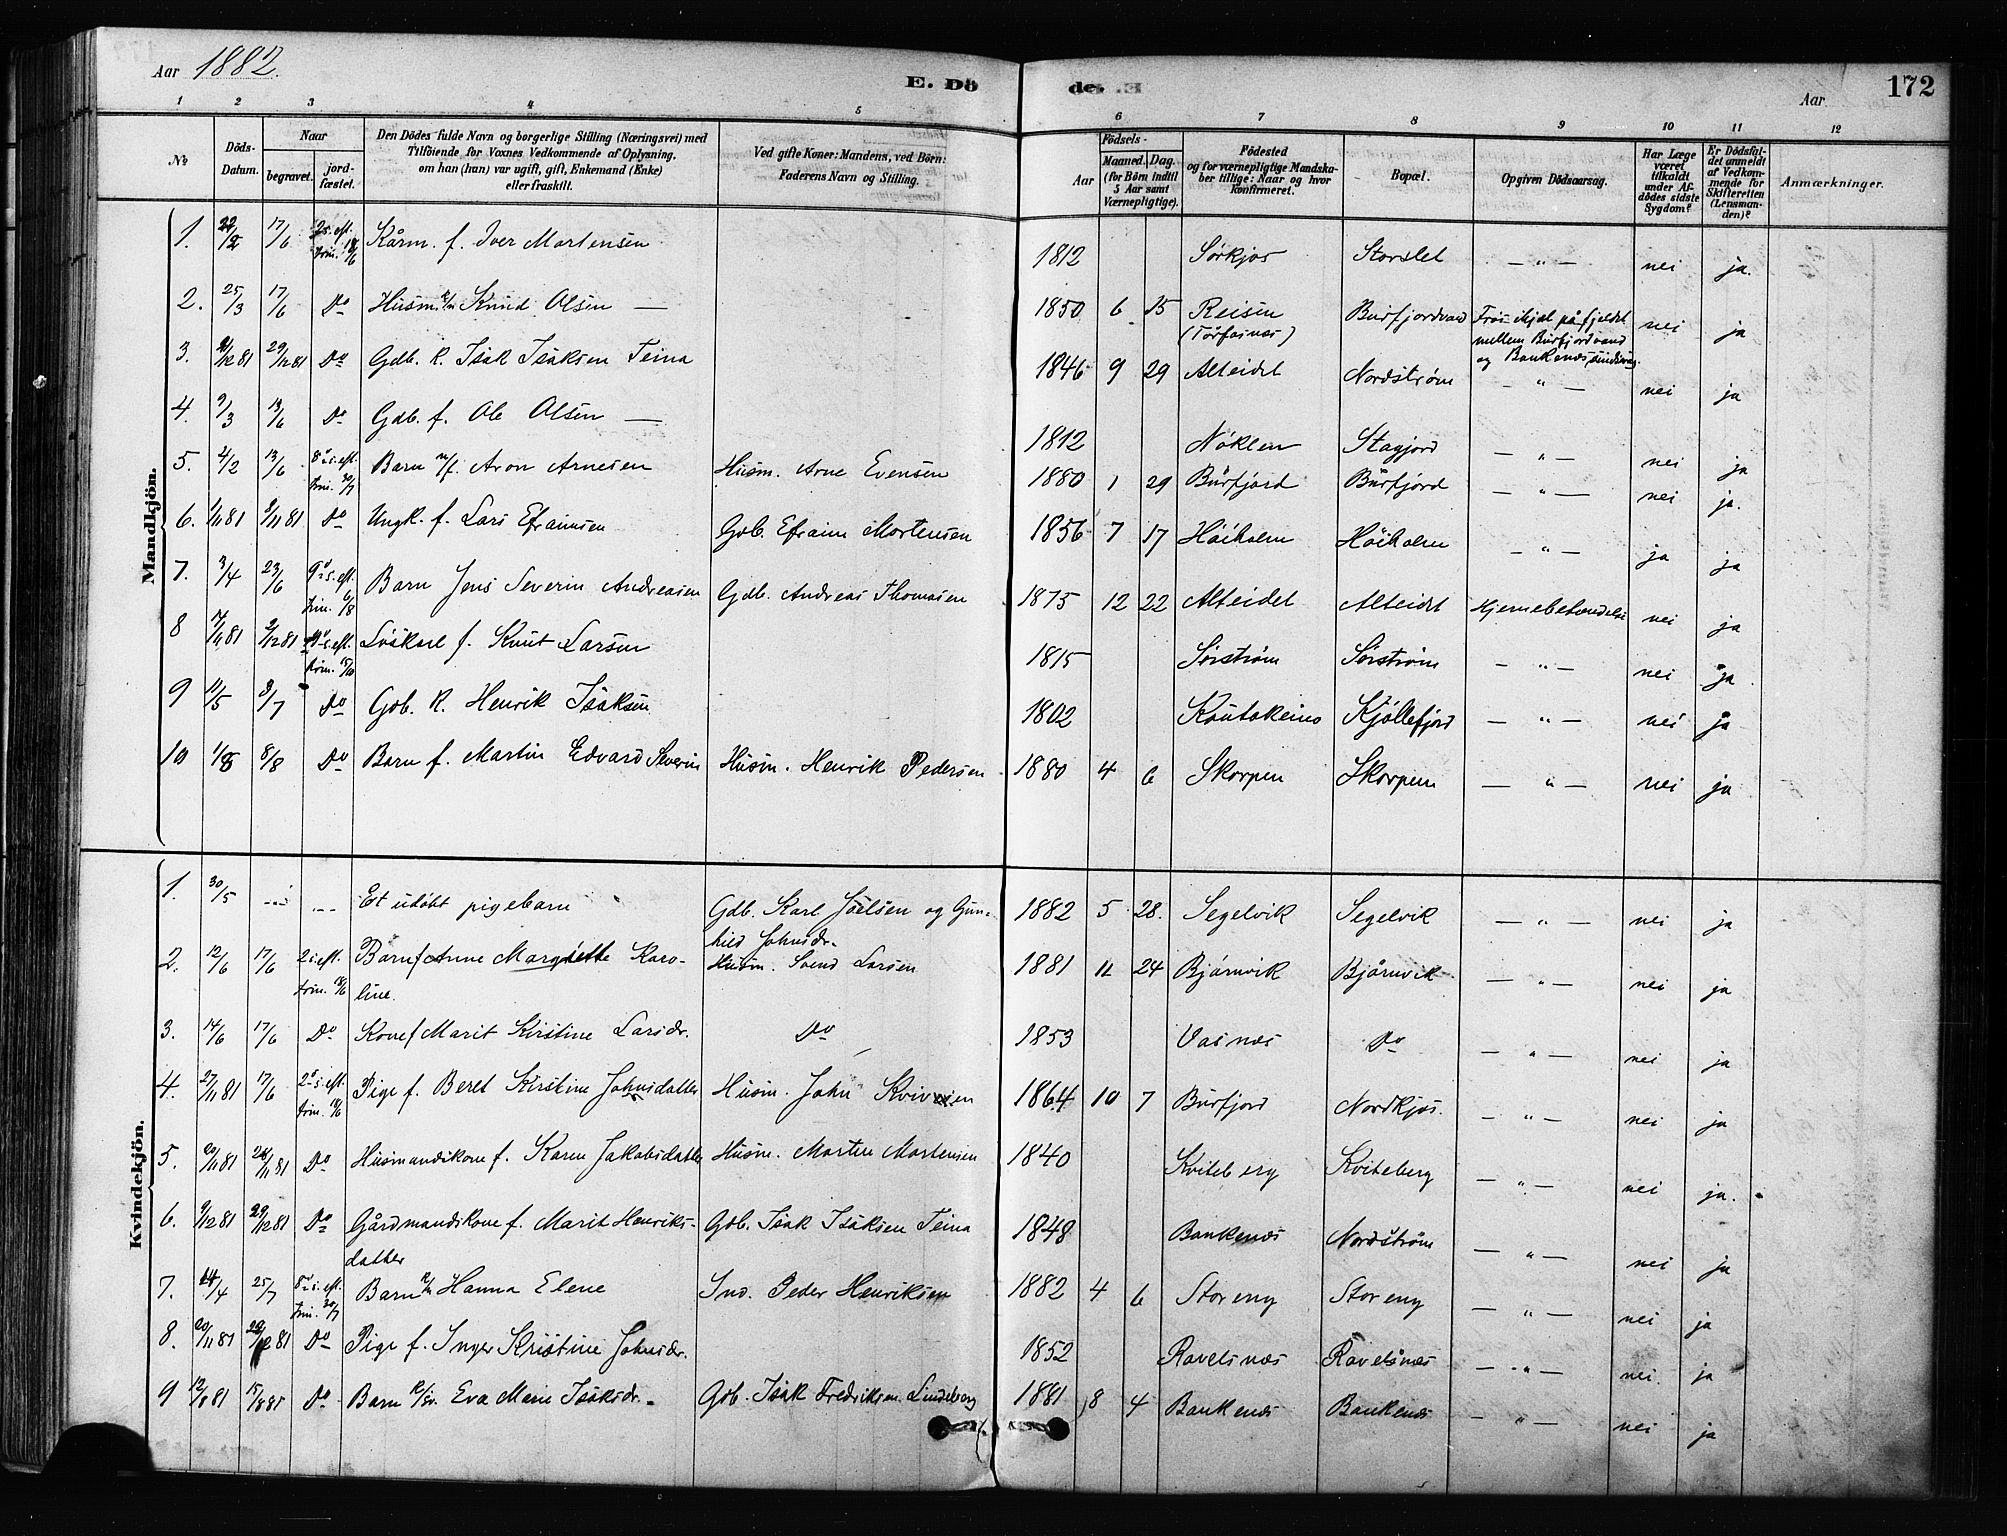 Aar 1882.
E. Dö
de. E
172
Aar
1 2 3 4 5 6 7 8 9 10 11 12
No
Döds-Datum.
Naar
begravet.
jord-fæstet.
Den Dödes fulde Navn og borgerlige Stilling (Næringsvei) med
Tilföiende for Voxnes Vedkommende af Oplysning,
om han (hun) var ugift, gift, Enkemand (Enke)
eller fraskilt.
Ved gifte Koner: Mandens, ved Börn:
Faderens Navn og Stilling.
Födsels-
Aar
Maaned. Dag.
(for Börn indtil
5 Aar samt
Værnepligtige).
Födested
og for værnepligtige Mandska-
ber tillige: Naar og hvor
konfirmeret.
Bopæl.
Opgiven Dödsaarsag.
Har Læge
været
tilkaldt
under Af-
dödes sidste
Sygdom?
Er Dödsfal-
det anmeldt
af Vedkom-
mende for
Skifteretten
(Lensman-
den)?
Anmærkninger.
Mandkjön.
1. 22/2 17/6 2 s. eft. trin. 18/6 Kårm. f. Iver Mortensen 1812 Sørkjos Storslet — " — nei ja.
2. 25/3 17/6 Do Husm. Knud Olsen — 1850 6 15 Reisen Burfjordvand Frøs ihjel på fjeldet nei ja
mellem Burfjordvand
og Bankenes
3. 21/12 81 29/12 81 Do Gdb. K. Isak Isaksen Teina 1846 9 29 Alteidet Nordstrøm — " — nei ja
4. 9/3 13/6 Do Gdb. f. Ole Olsen — 1812 Nöklen Stagjord — " — nei ja
5. 2/2 13/6 8de s. eft. trin. 30/7 Barn n/f. Aron Arnesen Husm. Arne Evensen 1880 1 29 Burfjord Burfjord — " — nei ja.
6. 1/11 81 3/11 81 Do Ungk. f. Lars Efraimsen Gdb. Efraim Mortensen 1856 7 17 Höiholm Höiholm — " — ja ja
7. 3/4 23/6 9de s. eft. trin. 6/8 Barn Jens Severin Andreasen Gdb. Andreas Thomasen 1875 12 22 Alteidet Alteidet Hjernebetændelse nei ja
8 17/11 81 2/12 81 s. eft. trin. 15/10 Löskarl f. Knut Larsen 1815 Sørstrøm Sørstrøm — " — nei ja.
9 11/5 3/7 Do Gdb. K. Henrik Isaksen 1802 Koutokeino Kjöllefjord — " — nei ja
10 1/8 8/8 Do Barn f. Martin Edvard Severin Husm. Henrik Pedersen 1880 4 6 Skorpen Skorpen — " — nei ja
Kvindekjön.
1. 30/5 Et udöbt pigebarn Gdb. Karl Joelsen og Gun-
hild Johnsdr. 1882 5 28. Segelvik Segelvik — " — nei ja
2. 12/6 17/6 2 s. eft. trin. 18/6 Barn f Anne Margrette Karo-
line. Husm. Svend Larsen 1881 11 24 Bjørnvik Bjørnvik — " — nei ja
3. 14/6 17/6 Do Kone f Marit Kirstine Larsdr. Do 1853 Vasnæs Do — " — nei ja
4. 27/11 81 17/6 2 s. eft. trin. 18/6 Pige f. Beret Kirstine Johnsdatter Husm. John 1864 10 7 Burfjord Nordkjos. — " — nei ja
5. 20/11 81 26/11 81 Do Husmandskone f. Karen Jakobsdatter Husm. Morten Mortensen 1840 Kviteberg Kviteberg — " — nei ja.
6. 9/12 81 29/12 81 Do Gårdmandskone f. Marit Henriks-
datter Gdb. Isak Isaksen Teina 1848 Bankenæs Nordstrøm — " — nei ja
7. 24/4 25/7 8de s. eft. trin. 30/7 Barn Hanna Elene Ind. Peder Henriksen 1882 4 6 Storeng Storeng — " — nei ja
8. 20/11 81 Do Pige f. Inger Kristine Johnsdr. 1852 Ravelsnæs Ravelsnæs — " — nei. ja
9 12/8 81 15/8 81 Do Barn Eva Marie Isaksdr. Gdb. Isak Fredriksen Lindeborg 1881 8 4 Bankenæs Bankenæs — " — nei ja